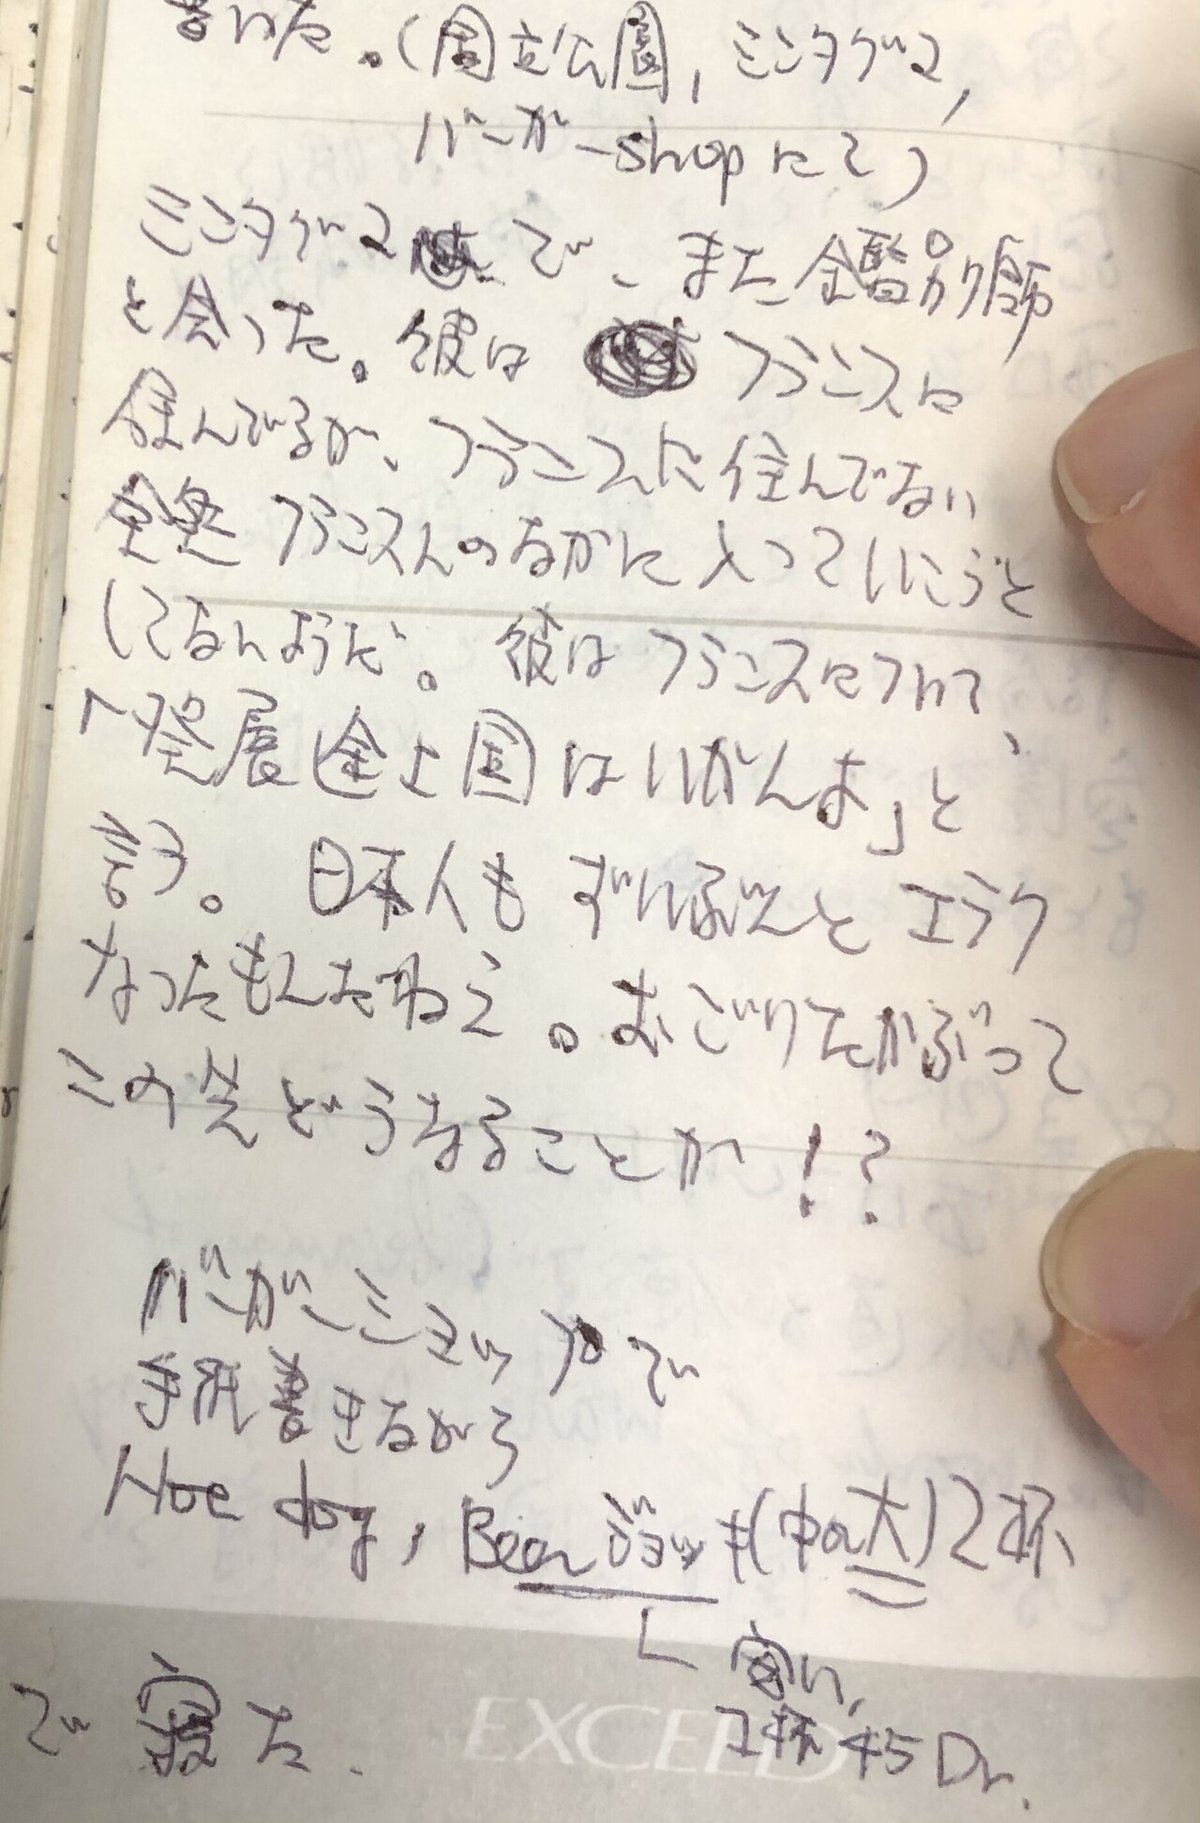 書いた。(国立公園, シンタグマ,
バーガーshopにて)
シンタグマで、また鑑別師
と会った。彼は フランスに
住んでるが、フランスに住んでない
フランス人のなかに入っていこうと
してないようだ。彼はフランスについて、
「発展途上国はいかんよ」と
言う。日本人もずいぶんとエラク
なったもんだねえ。おごりたかぶって
この先どうなることか!?
バーガーショップで
手紙書きながら
Hot dog, Beerジョッキ(中の大)2杯
└ 安い,
2杯 45 Dr.
で寝た.
EXCEED